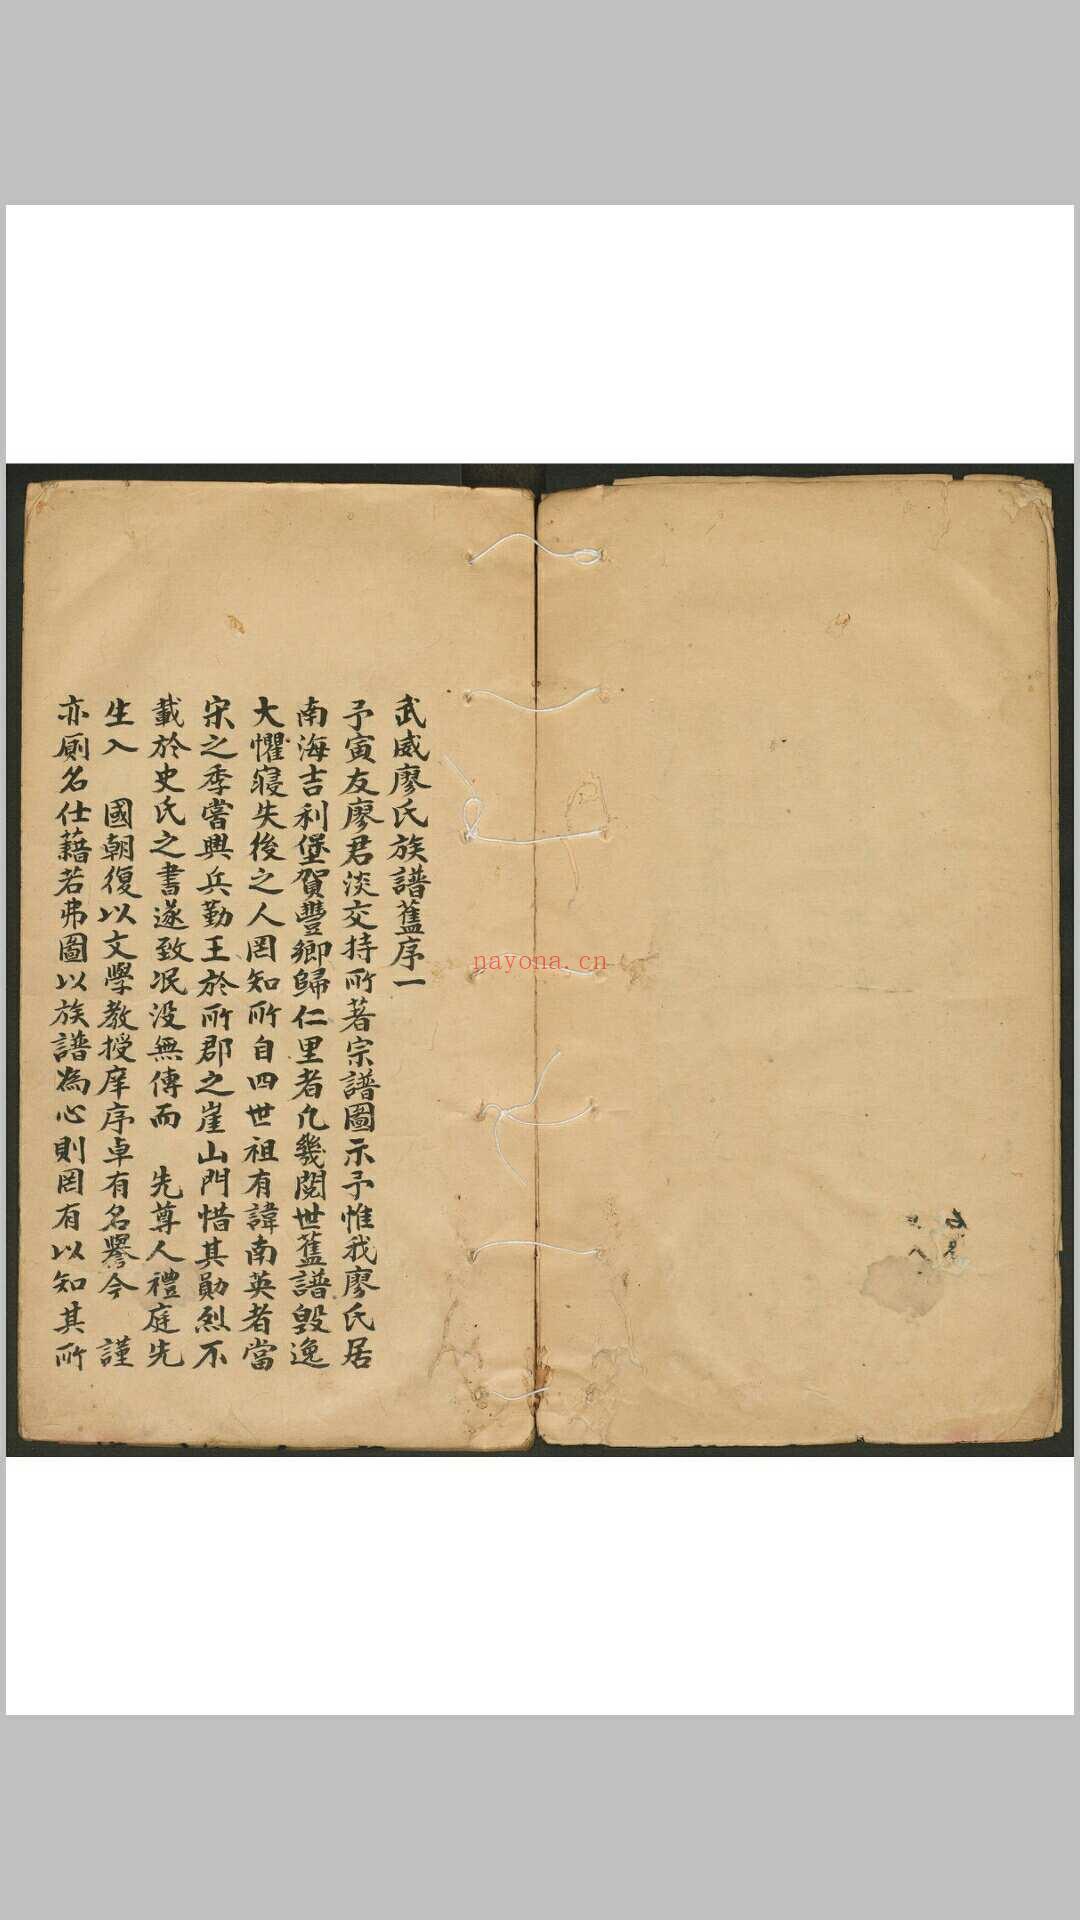 武威廖氏族譜舊序一
予寅友廖君淡交持所著宗譜圖示予惟我廖氏居
南海吉利堡賀豐鄉歸仁里者凢幾閱世舊譜毀逸
大懼寖失後之人罔知所自四世祖有諱南英者當
宋之季嘗興兵勤王於所郡之崖山門惜其勛烈不
載於史氏之書遂致泯没無傳而 先尊人禮庭先
生入 國朝復以文學教授庠序卓有名譽今 謹
亦厠名仕藉若弗圖以族譜為心則罔有以知其所
nayona.cn